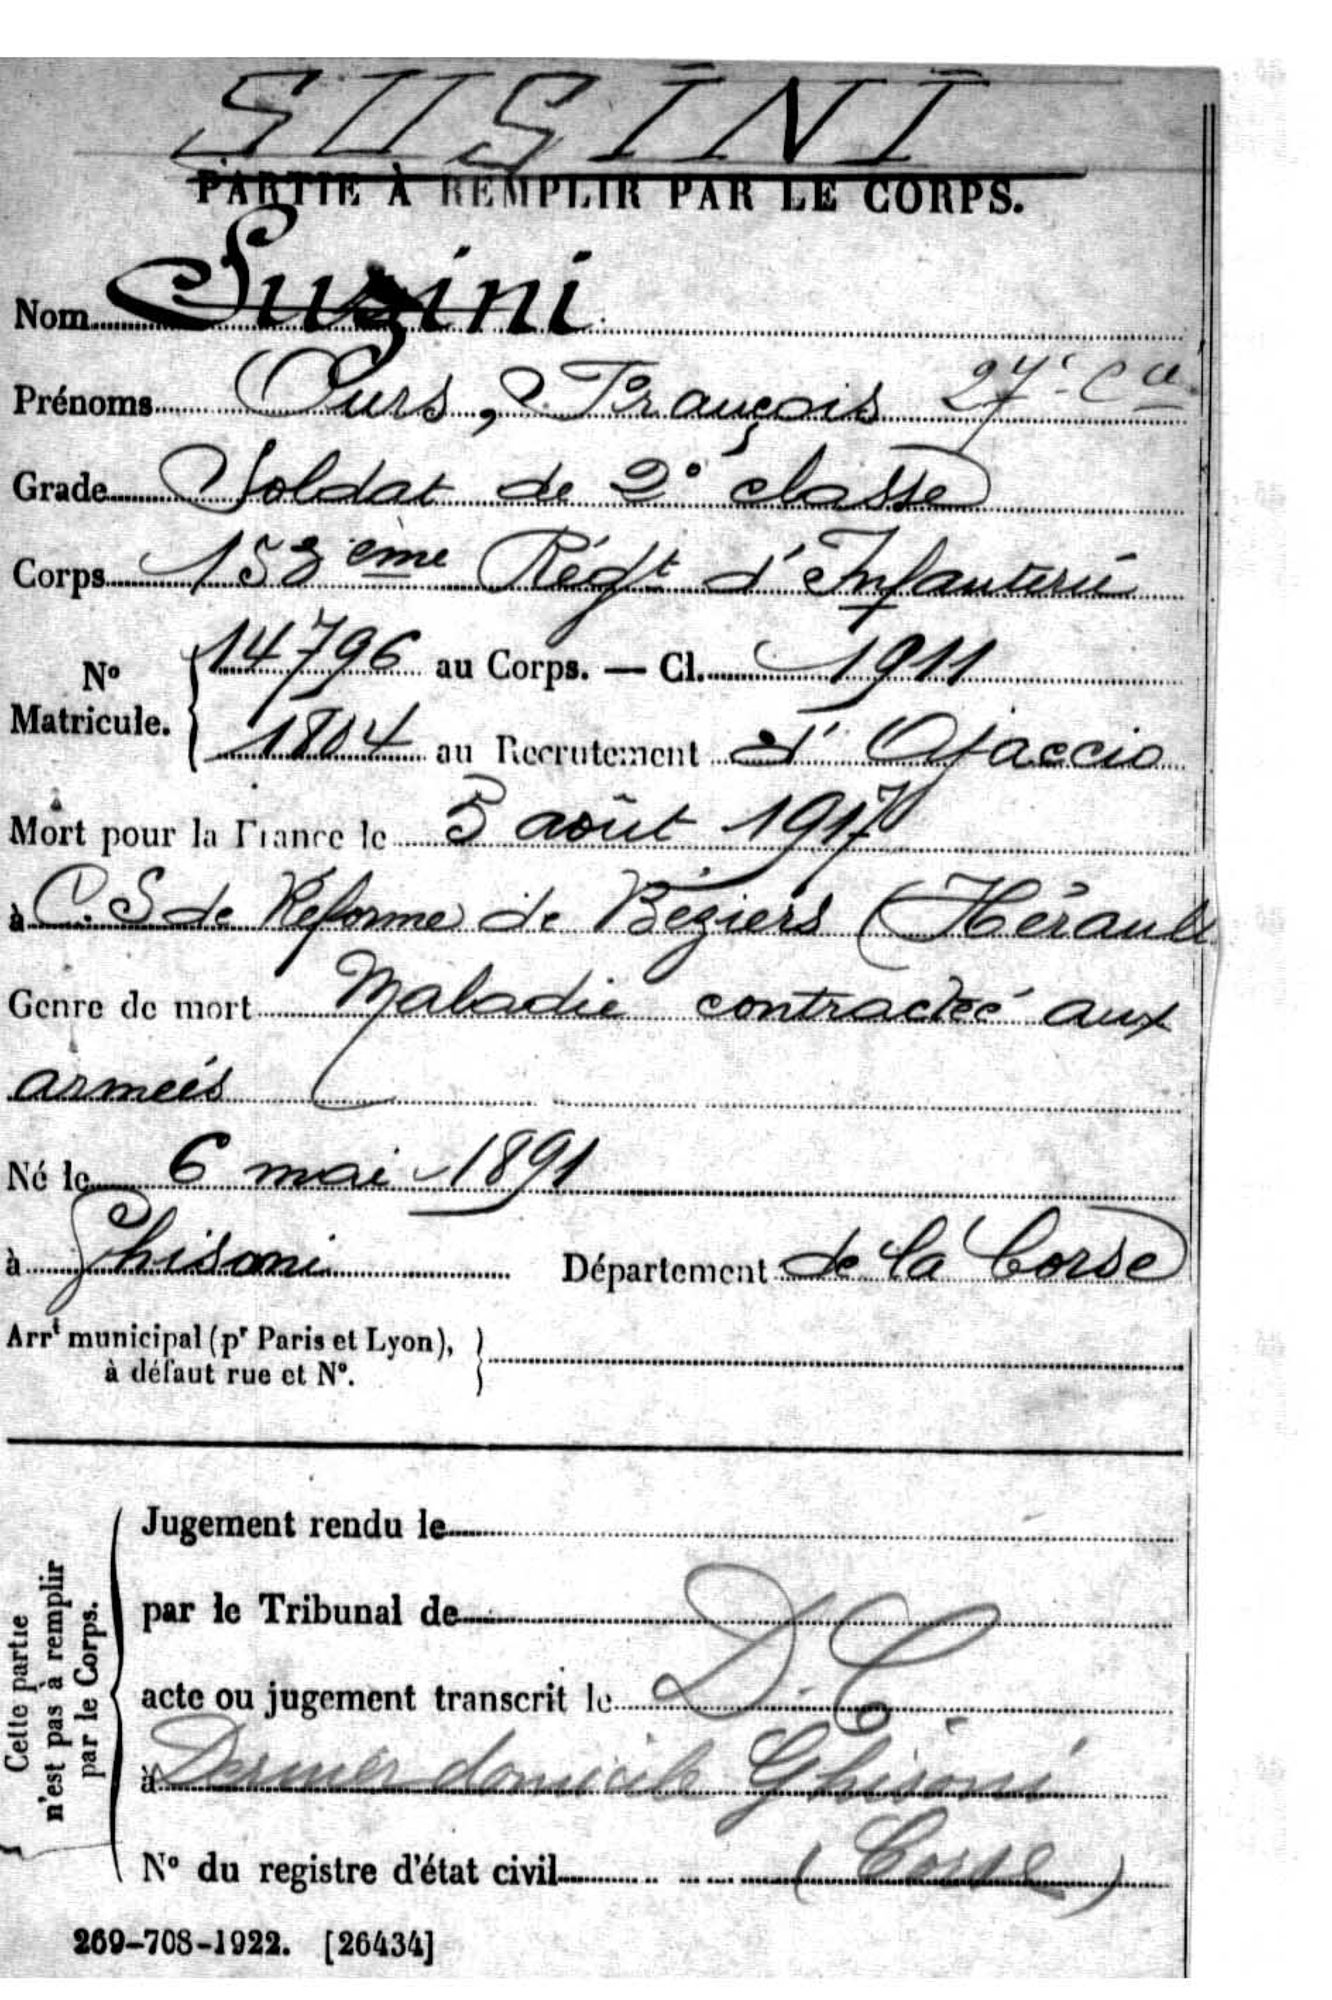 SUSINI
PARTIE À REMPLIR PAR LE CORPS.
Nom Suzini
Prénoms Ours, François 27e Cie
Grade Soldat de 2e classe
Corps 158ème Régt d'Infanterie
No Matricule. 14796 au Corps. — Cl. 1911
1804 au Recrutement d'Ajaccio
Mort pour la France le 5 août 1917
à C.S de Réforme de Béziers (Hérault
Genre de mort Maladie contractée aux
armées
Né le 6 mai 1891
à Ghisoni Département de la Corse
Arrt municipal (pr Paris et Lyon),
à défaut rue et No.
Cette partie
n'est pas à remplir
par le Corps.
Jugement rendu le
par le Tribunal de
acte ou jugement transcrit le D.C
à Dernier domicile Ghisoni
No du registre d'état civil (Corse)
269-708-1922. [26434]